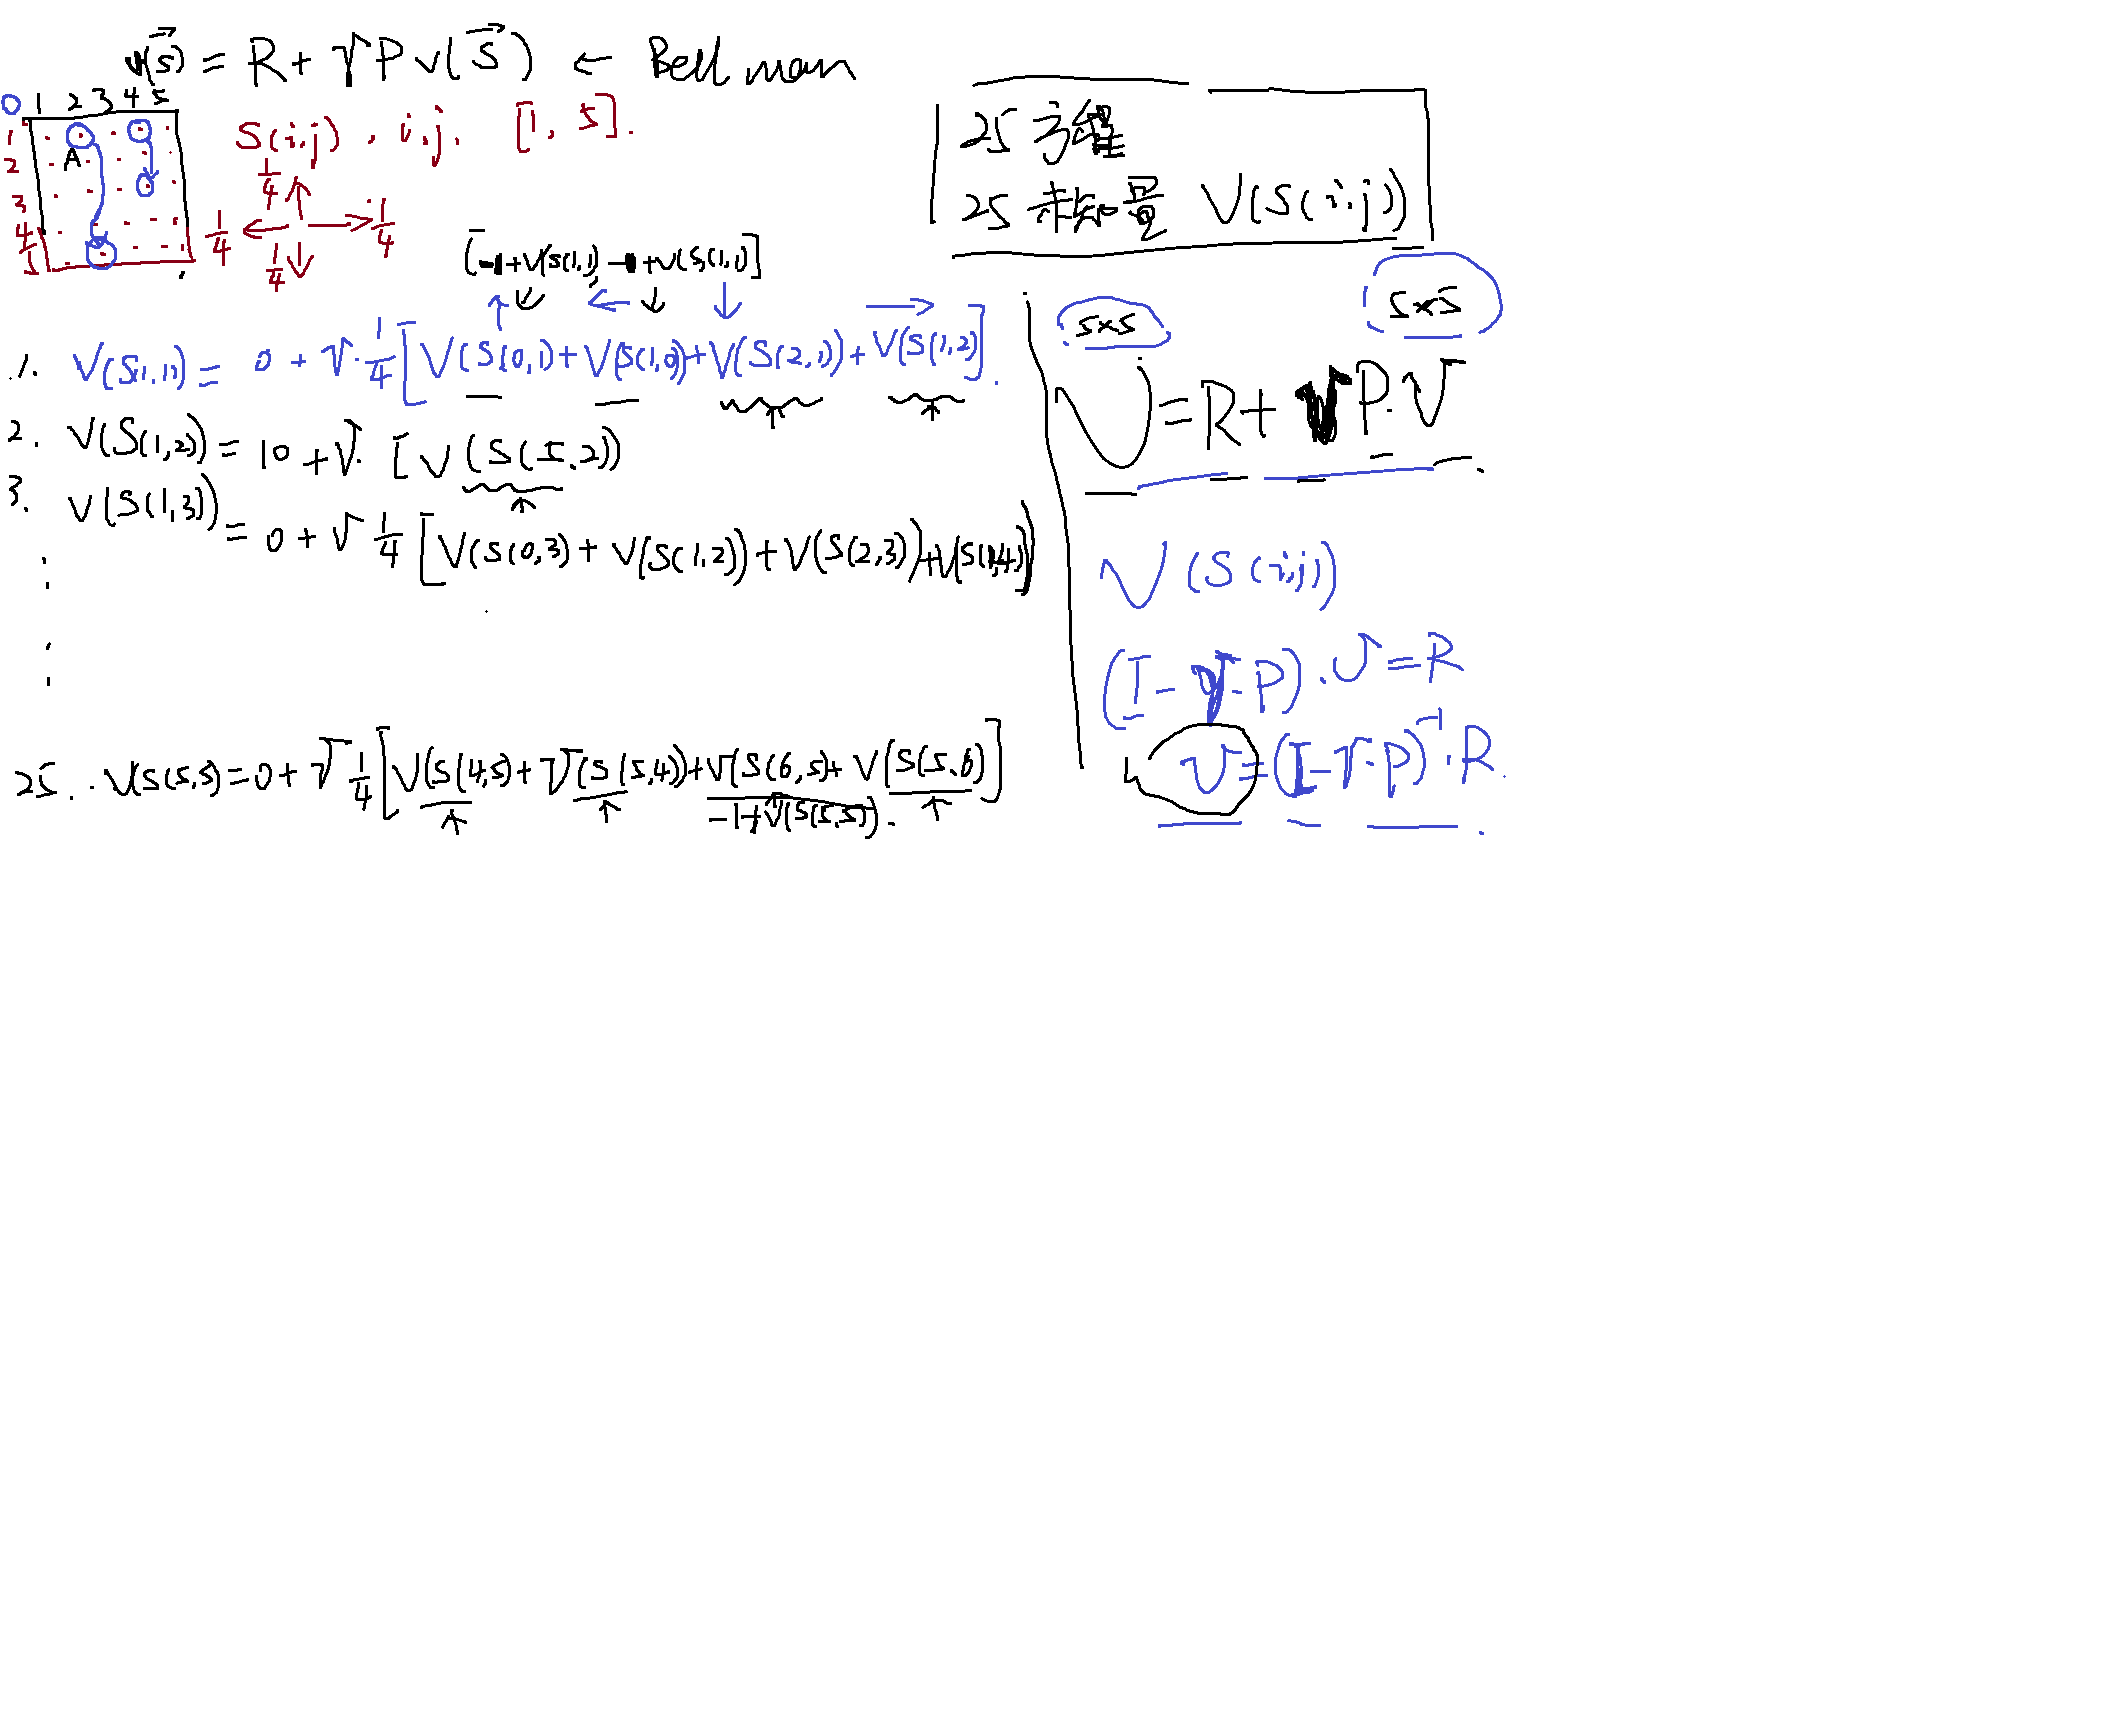 v(s⃗) = R + γ P v(s⃗) ← Bellman
0 1 2 3 4 5
1
2
3
4
5
A
S(i,j) , i,j, [1, 5].
1/4 ↑
1/4 ← → 1/4
1/4 ↓
25 方程
25 未知量 V(S(i,j))
[-1+V(S(1,1) -1+V(S(1,1)]
↑ ↓ ← ↓ ↓ →
1. V(S(1,1)) = 0 + γ·1/4 [V(S(0,1) + V(S(1,0) + V(S(2,1)) + V(S(1,2)].
2. V(S(1,2)) = 10 + γ· [V(S(5,2))
3. V(S(1,3)) = 0 + γ 1/4 [V(S(0,3) + V(S(1,2)) + V(S(2,3)) + V(S(1,4))]
25. V(S(5,5) = 0 + γ 1/4 [V(S(4,5) + V(S(5,4)) + V(S(6,5) + V(S(5,6)]
-1+V(S(5,5)).
5×5 5×5
V = R + γ P·V
V(S(i,j))
(I - γ·P)·V = R
V = (I - γ·P)⁻¹·R.